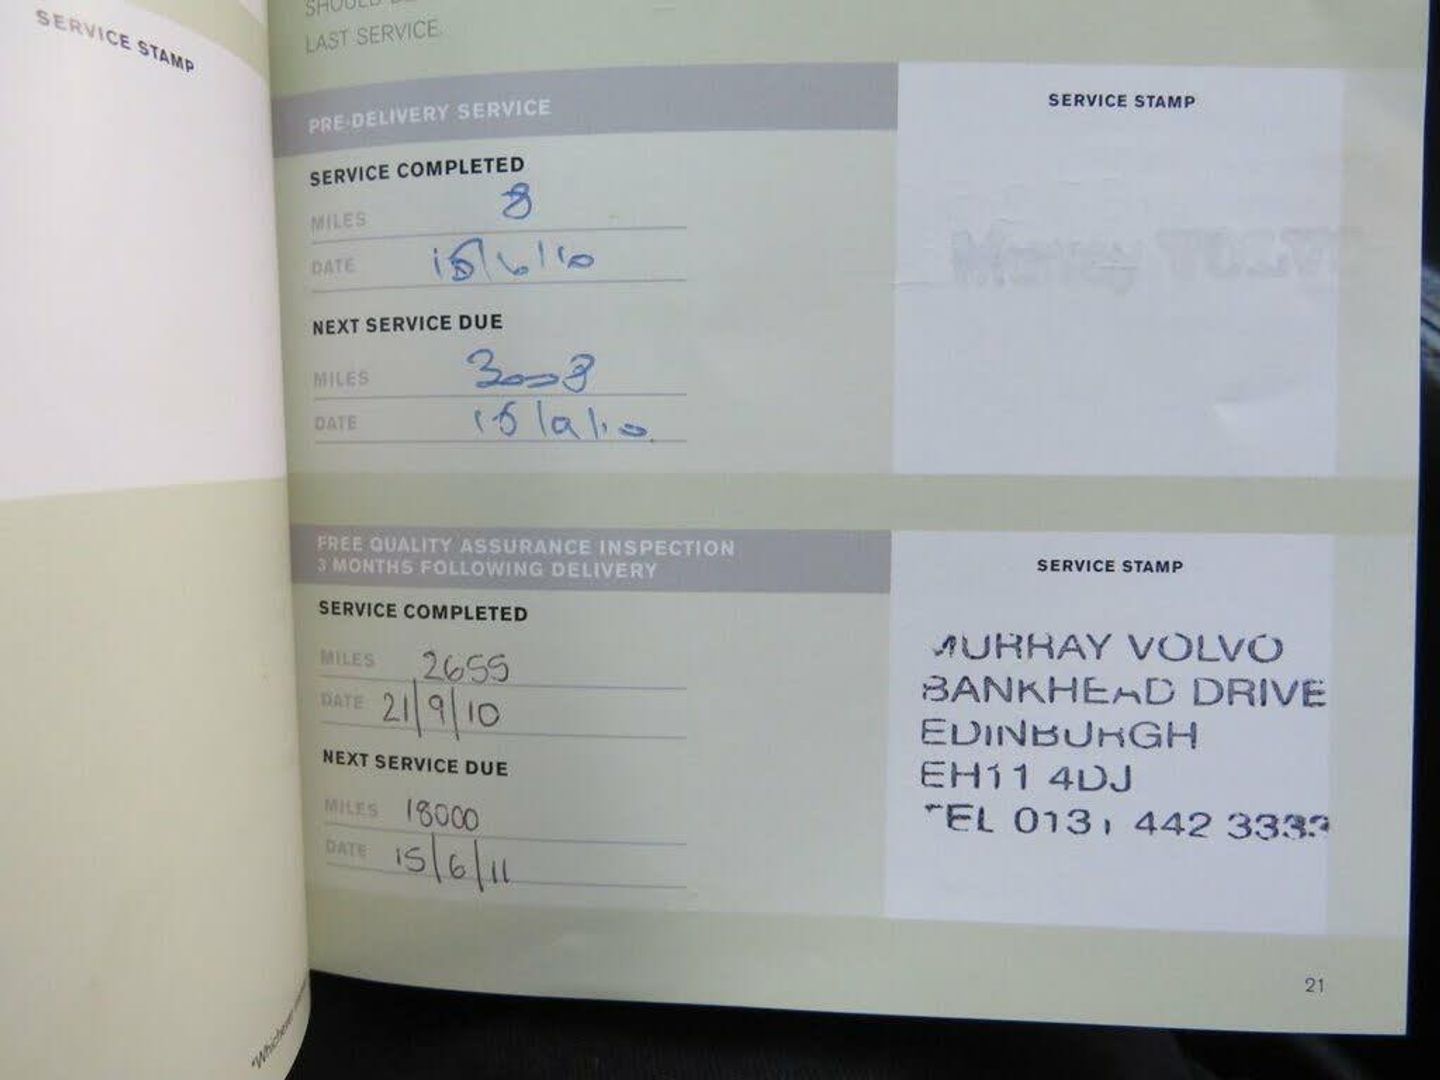 SERVICE STAMP
LAST SERVICE.
PRE-DELIVERY SERVICE
SERVICE STAMP
SERVICE COMPLETED
MILES 8
DATE 15/6/10
NEXT SERVICE DUE
MILES 3008
DATE 15/9/10
FREE QUALITY ASSURANCE INSPECTION
3 MONTHS FOLLOWING DELIVERY
SERVICE STAMP
SERVICE COMPLETED
MILES 2655
DATE 21/9/10
NEXT SERVICE DUE
MILES 18000
DATE 15/6/11
MURRAY VOLVO
BANKHEAD DRIVE
EDINBURGH
EH11 4DJ
TEL 0131 442 3333
21
*Whichever